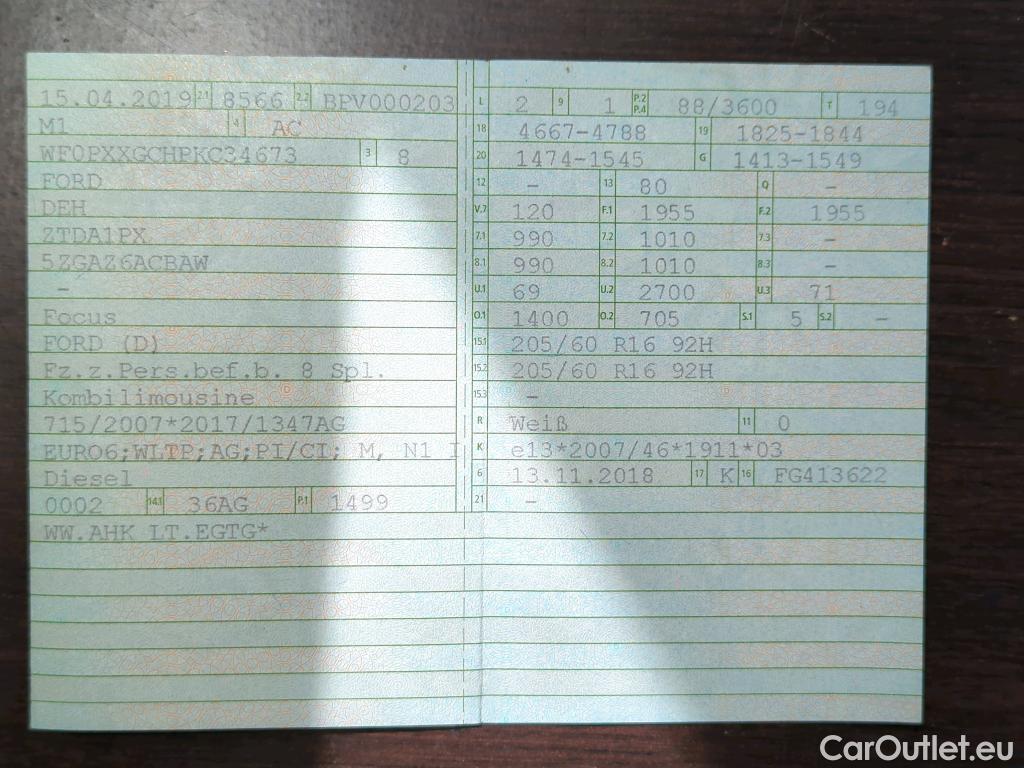 15.04.2019 2.1 8566 2.2 BPV000203
M1 4 AC
WF0PXXGCHPKC34673 3 8
FORD
DEH
ZTDA1PX
5ZGAZ6ACBAW
–
Focus
FORD (D)
Fz.z.Pers.bef.b. 8 Spl.
Kombilimousine
715/2007*2017/1347AG
EURO6;WLTP;AG;PI/CI; M, N1 I
Diesel
0002 14.1 36AG P.1 1499
WW.AHK LT.EGTG*
L 2 9 1 P.2 P.4 88/3600 T 194
18 4667-4788 19 1825-1844
20 1474-1545 G 1413-1549
12 – 13 80 Q –
V.7 120 F.1 1955 F.2 1955
7.1 990 7.2 1010 7.3 –
8.1 990 8.2 1010 8.3 –
U.1 69 U.2 2700 U.3 71
O.1 1400 O.2 705 S.1 5 S.2 –
15.1 205/60 R16 92H
15.2 205/60 R16 92H
15.3 –
R Weiß 11 0
K e13*2007/46*1911*03
6 13.11.2018 17 K 16 FG413622
21 –
CarOutlet.eu